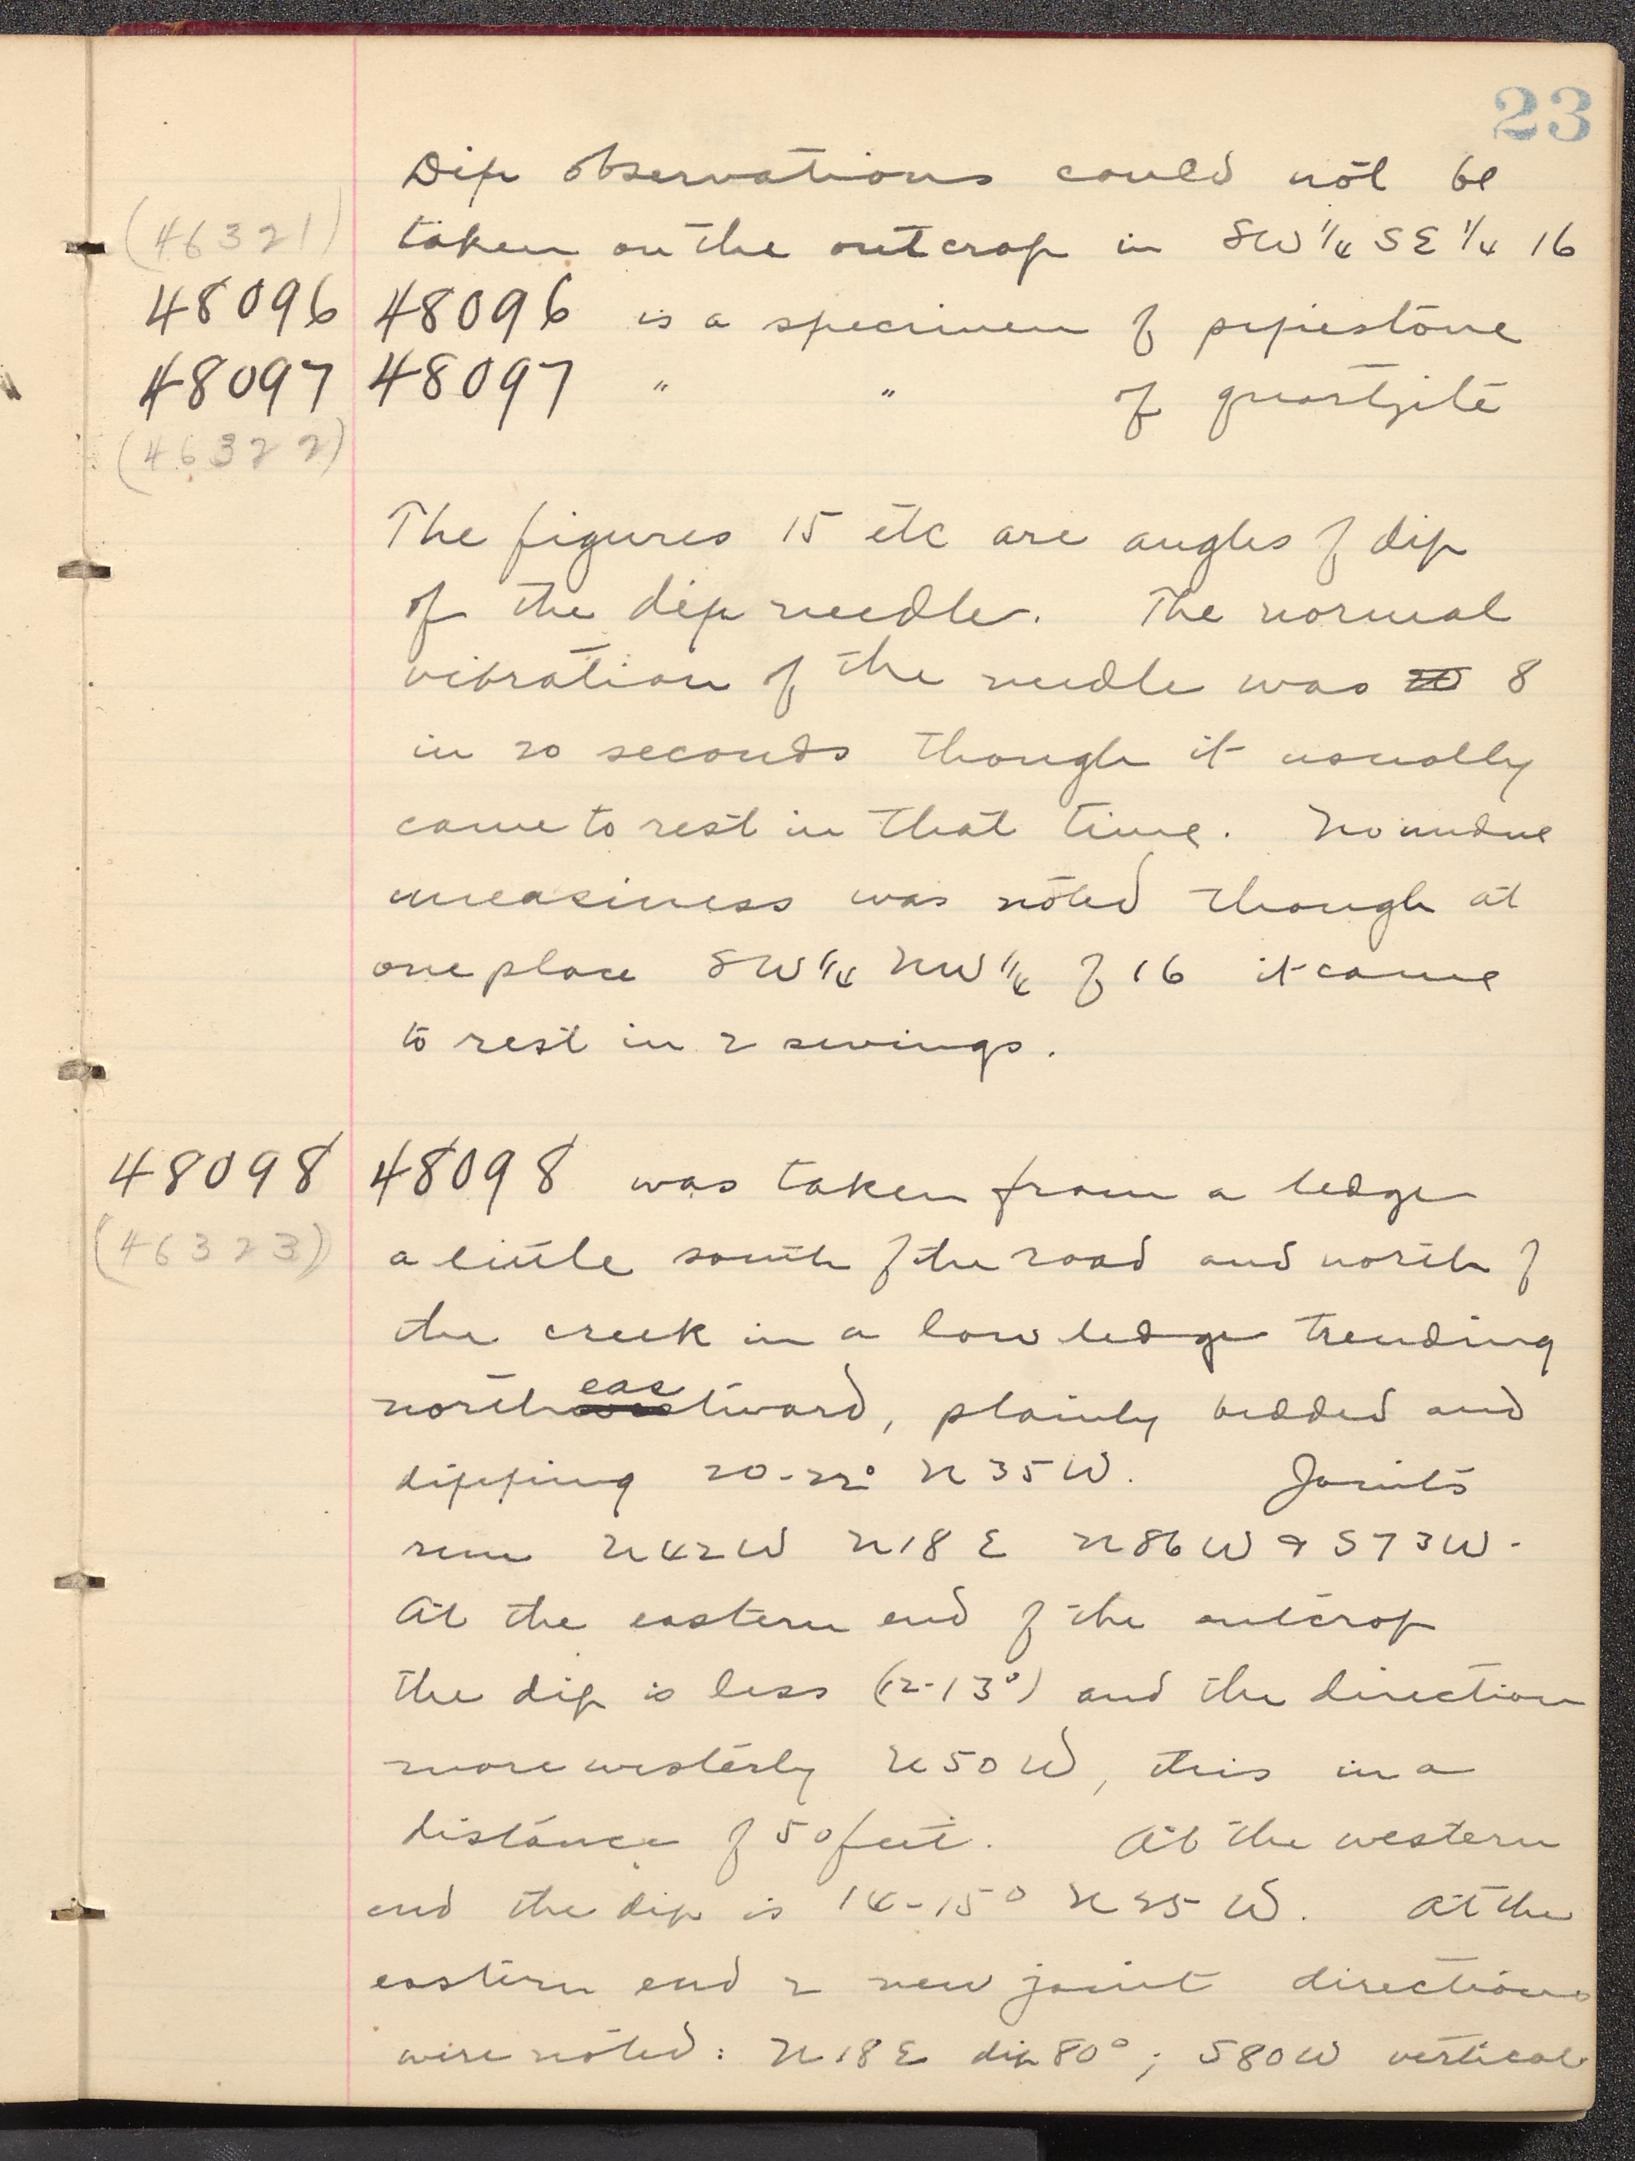 23
Dip observations could not be
(46321) taken on the outcrop in SW 1/4 SE 1/4 16
48096 48096 is a specimen of pipestone
48097 48097 " " of quartzite
(46322)
The figures 15 etc are angles of dip
of the dip needle. The normal
vibration of the needle was 8
in 20 seconds though it usually
came to rest in that time. No undue
uneasiness was noted though at
one place SW 1/4 NW 1/4 of 16 it came
to rest in 2 swings.
48098 48098 was taken from a ledge
(46323) a little south of the road and north of
the creek in a low ledge trending
northeastward, plainly bedded and
dipping 20-22° N35W. Joints
run N42W N18E N86W & S73W.
At the eastern end of the outcrop
the dip is less (12-13°) and the direction
more westerly N50W, this in a
distance of 50 feet. At the western
end the dip is 14-15° N25W. At the
eastern end 2 new joint directions
were noted: N18E dip 80°; S80W vertical